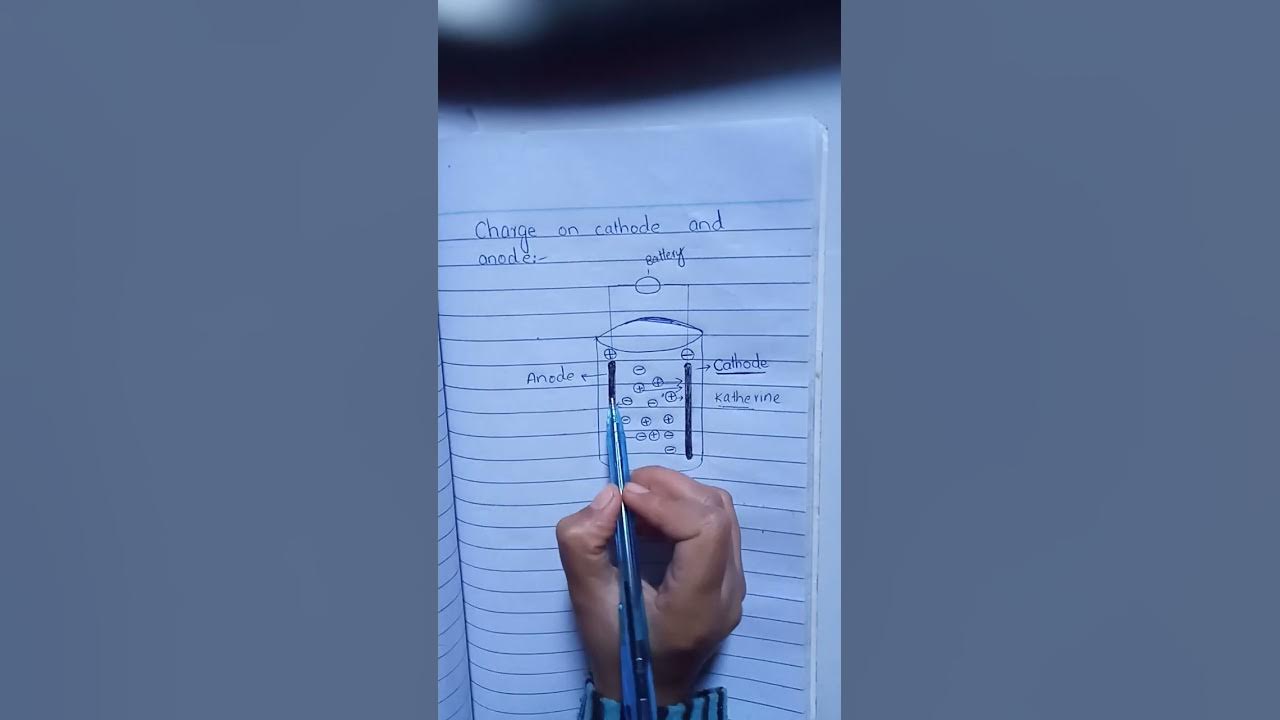 Charge on cathode and
anode:-
Battery
⊕ ⊖
Cathode
Anode
Katherine